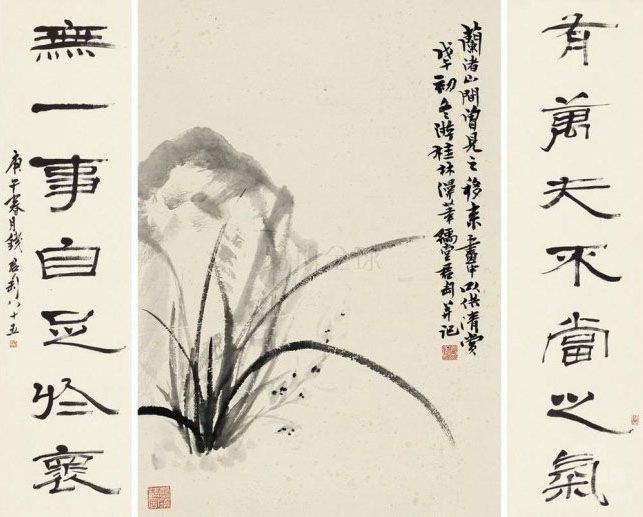 有萬夫不當之氣
蘭渚山間曾見之移來畫中以供清賞
戊午初冬游桂林 豫堂君匋并記
無一事自足於褱
庚午春月錢君匋八十五